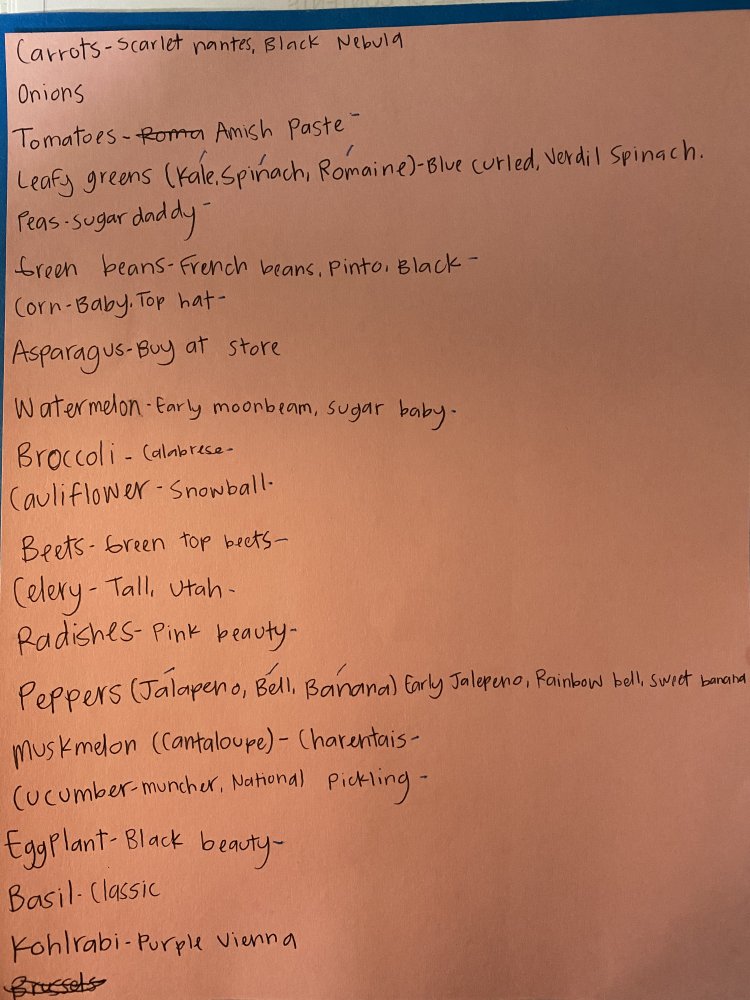 Carrots-Scarlet nantes, Black Nebula
Onions
Tomatoes-Roma Amish Paste-
Leafy greens (Kale, Spinach, Romaine)-Blue curled, Verdil Spinach.
Peas-sugar daddy-
Green beans-French beans, Pinto, Black-
Corn-Baby, Top hat-
Asparagus-Buy at store
Watermelon-Early moonbeam, sugar baby-
Broccoli-Calabrese-
Cauliflower-Snowball-
Beets-Green top beets-
Celery-Tall, Utah-
Radishes-Pink beauty-
Peppers (Jalapeno, Bell, Banana) Early Jalepeno, Rainbow bell, sweet banana
Muskmelon (Cantaloupe)-Charentais-
Cucumber-muncher, National Pickling-
Eggplant-Black beauty-
Basil-Classic
Kohlrabi-Purple Vienna
Brussels